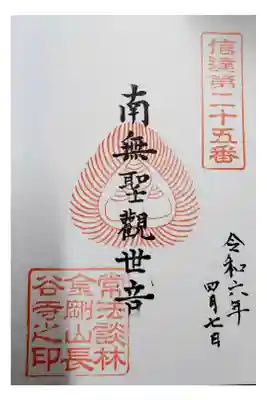 信達第二十五番
南無聖觀世音
令和六年
四月七日
常法談林
金剛山長
谷寺之印